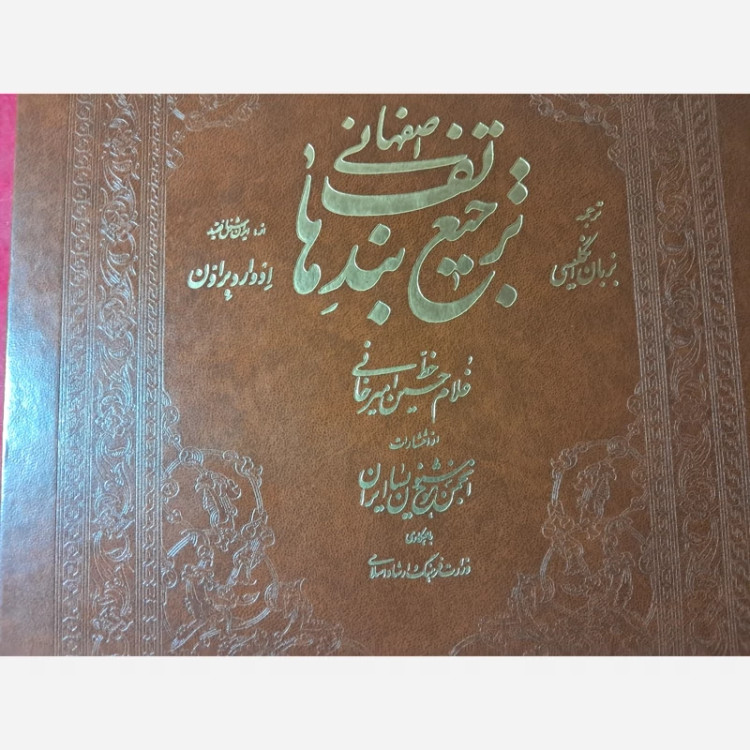 ترجیع بندهای
هاتف اصفهانی
ترجمه
بزبان انگلیسی
از:
ادوارد براون
خط
غلامحسین امیرخانی
از انتشارات
انجمن خوشنویسان ایران
با همکاری
وزارت فرهنگ و ارشاد اسلامی